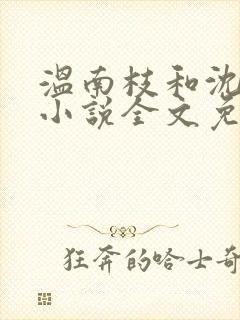 温南枝和沈
小說全文免
狂奔的哈士奇